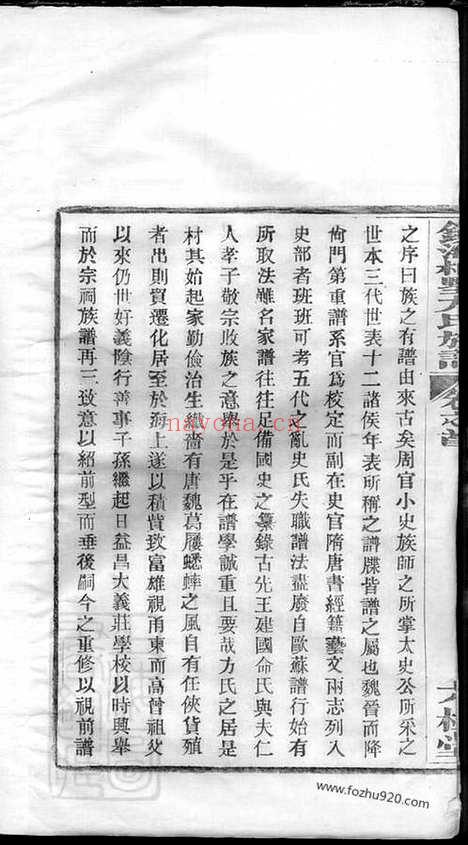 之序曰族之有譜由來古矣周官小史族師之所掌太史公所采之
世本三代世表十二諸侯年表所稱之譜牒皆譜之屬也魏晉而降
尙門第重譜系官爲校定而副在史官隋唐書經籍藝文兩志列入
史部者班班可考五代之亂史氏失職譜法盡廢自歐蘇譜行始有
所取法雖名家譜往往足備國史之纂錄古先王建國命氏與夫仁
人孝子敬宗收族之意舉於是乎在譜學誠重且要哉方氏之居是
村其始起家勤儉治生纖嗇有唐魏葛屨蟋蟀之風自有任俠貨殖
者出則貿遷化居至於海上遂以積貲致富雄視甬東而高曾祖父
以來仍世好義陰行善事子孫繼起日益昌大義莊學校以時興舉
而於宗祠族譜再三致意以紹前型而垂後嗣今之重修以視前譜
navona.cn
www.fozhu920.com